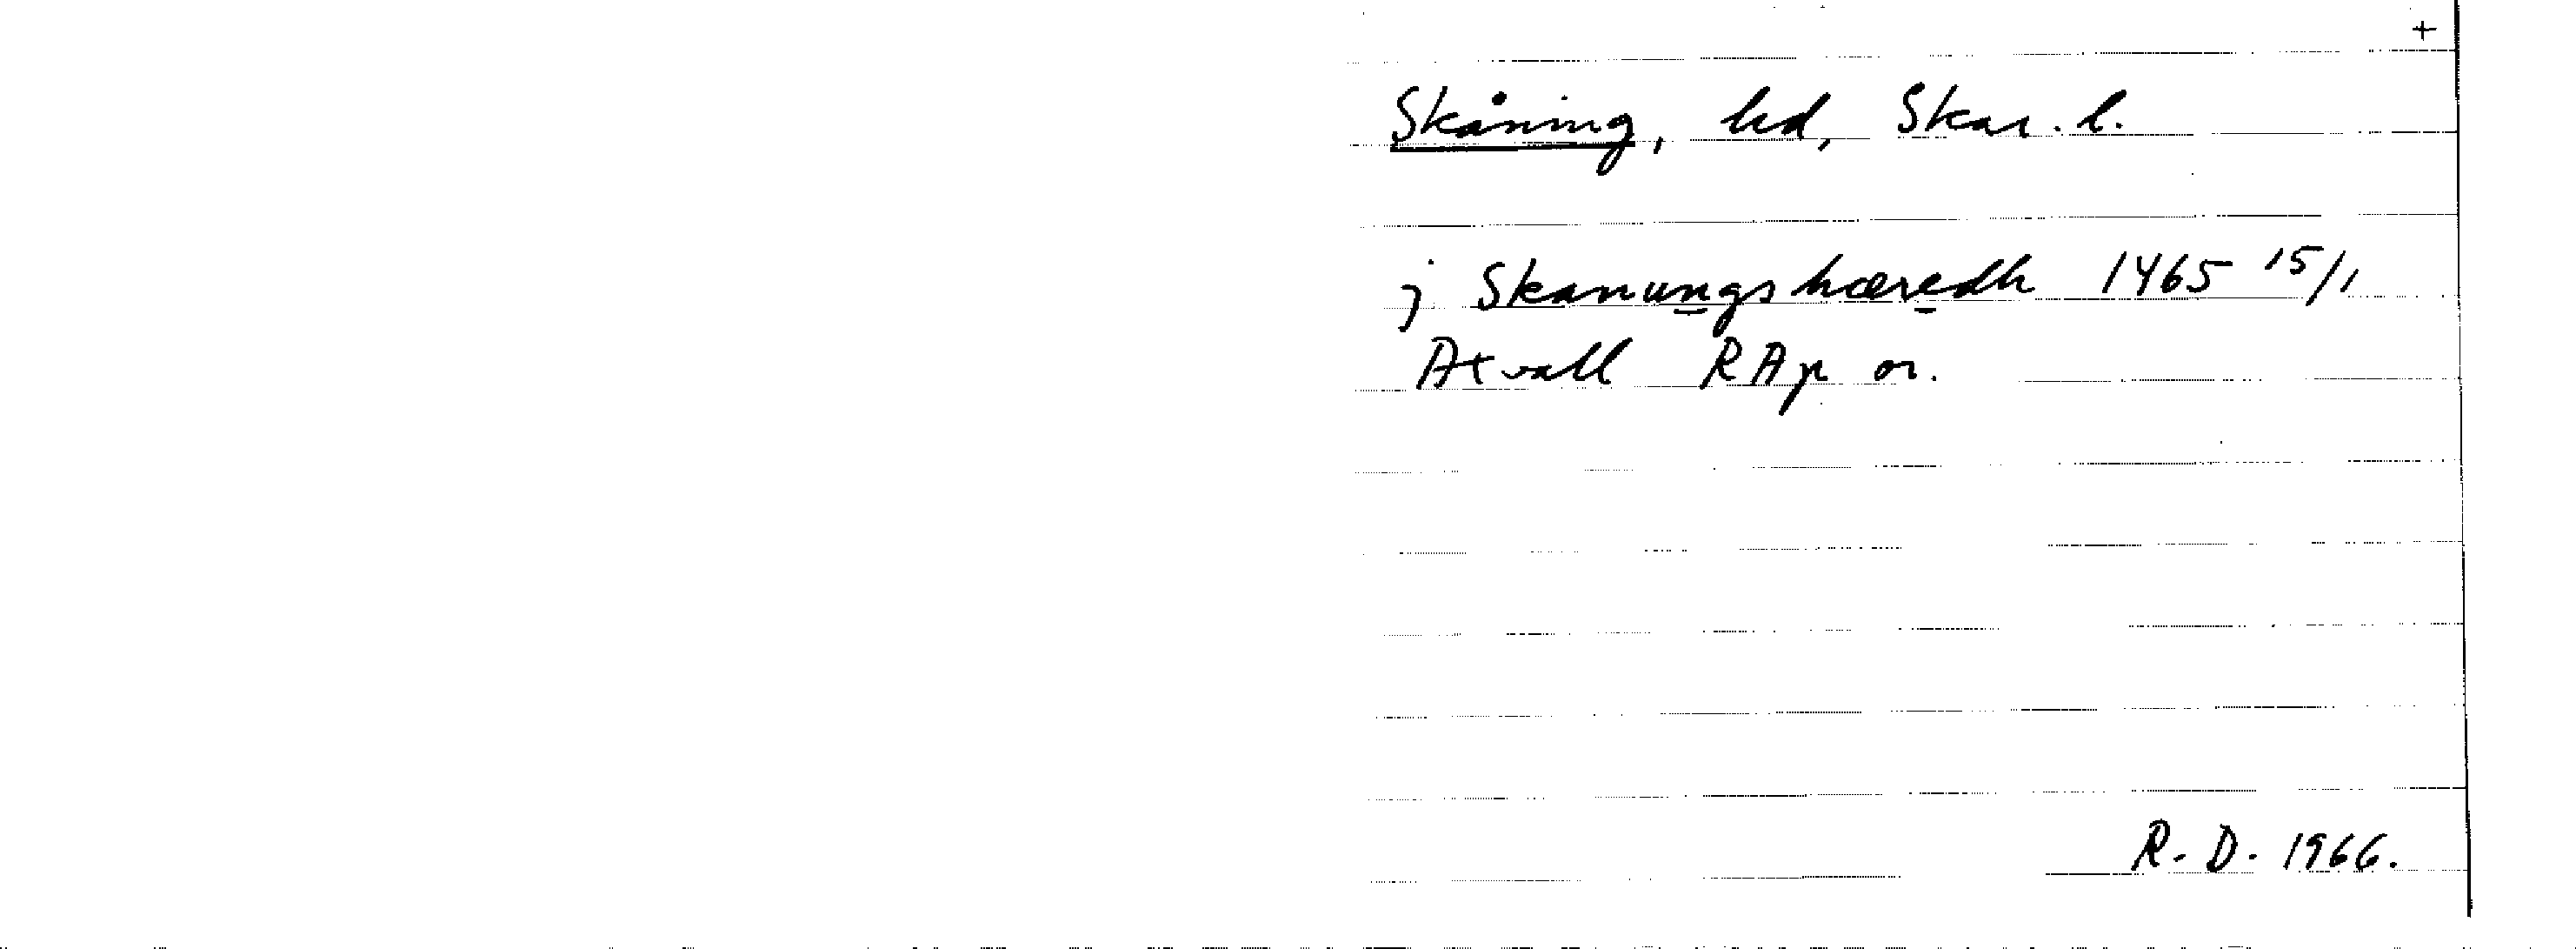 +
Skåning, hd, Skar. l.
j Skanungshæredh 1465 15/1
Axvall RAp or.
R. D. 1966.